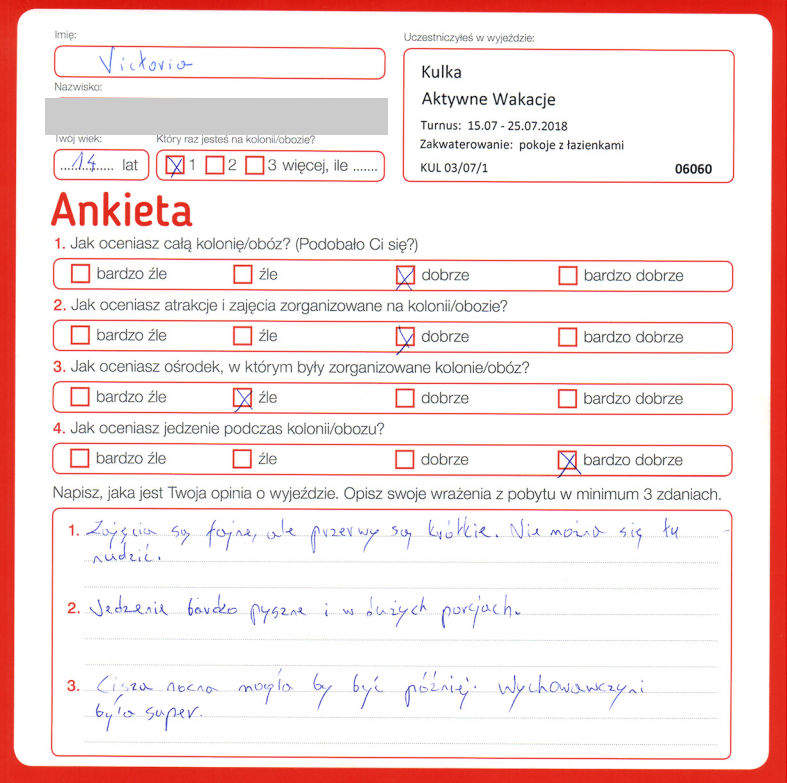 Imię:
Victoria
Nazwisko:
Twój wiek:
14 lat
Który raz jesteś na kolonii/obozie?
1 2 3 więcej, ile .......
Uczestniczyłeś w wyjeździe:
Kulka
Aktywne Wakacje
Turnus: 15.07 - 25.07.2018
Zakwaterowanie: pokoje z łazienkami
KUL 03/07/1 06060
Ankieta
1. Jak oceniasz całą kolonię/obóz? (Podobało Ci się?)
bardzo źle źle dobrze bardzo dobrze
2. Jak oceniasz atrakcje i zajęcia zorganizowane na kolonii/obozie?
bardzo źle źle dobrze bardzo dobrze
3. Jak oceniasz ośrodek, w którym były zorganizowane kolonie/obóz?
bardzo źle źle dobrze bardzo dobrze
4. Jak oceniasz jedzenie podczas kolonii/obozu?
bardzo źle źle dobrze bardzo dobrze
Napisz, jaka jest Twoja opinia o wyjeździe. Opisz swoje wrażenia z pobytu w minimum 3 zdaniach.
1. Zajęcia są fajne, ale przerwy są krótkie. Nie można się tu
nudzić.
2. Jedzenie bardzo pyszne i w dużych porcjach.
3. Cisza nocna mogła by być później. Wychowawczyni
była super.